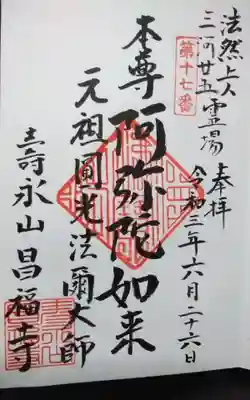 法然上人
三河廿五霊場
第十七番
奉拝
令和三年六月二十六日
本尊 阿弥陀如来
元祖圓光法爾大師
壽永山昌福寺